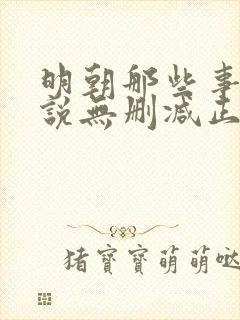 明朝那些事
説無删减正
猪寶寶萌萌哒